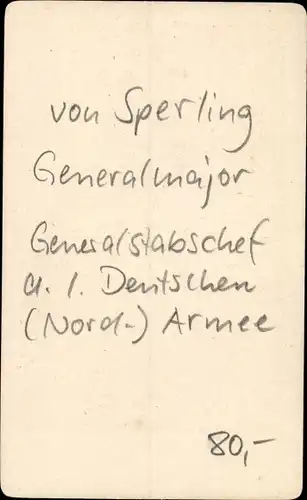 von Sperling
Generalmajor
Generalstabschef
d. 1. Deutschen
(Nord-) Armee
80,-